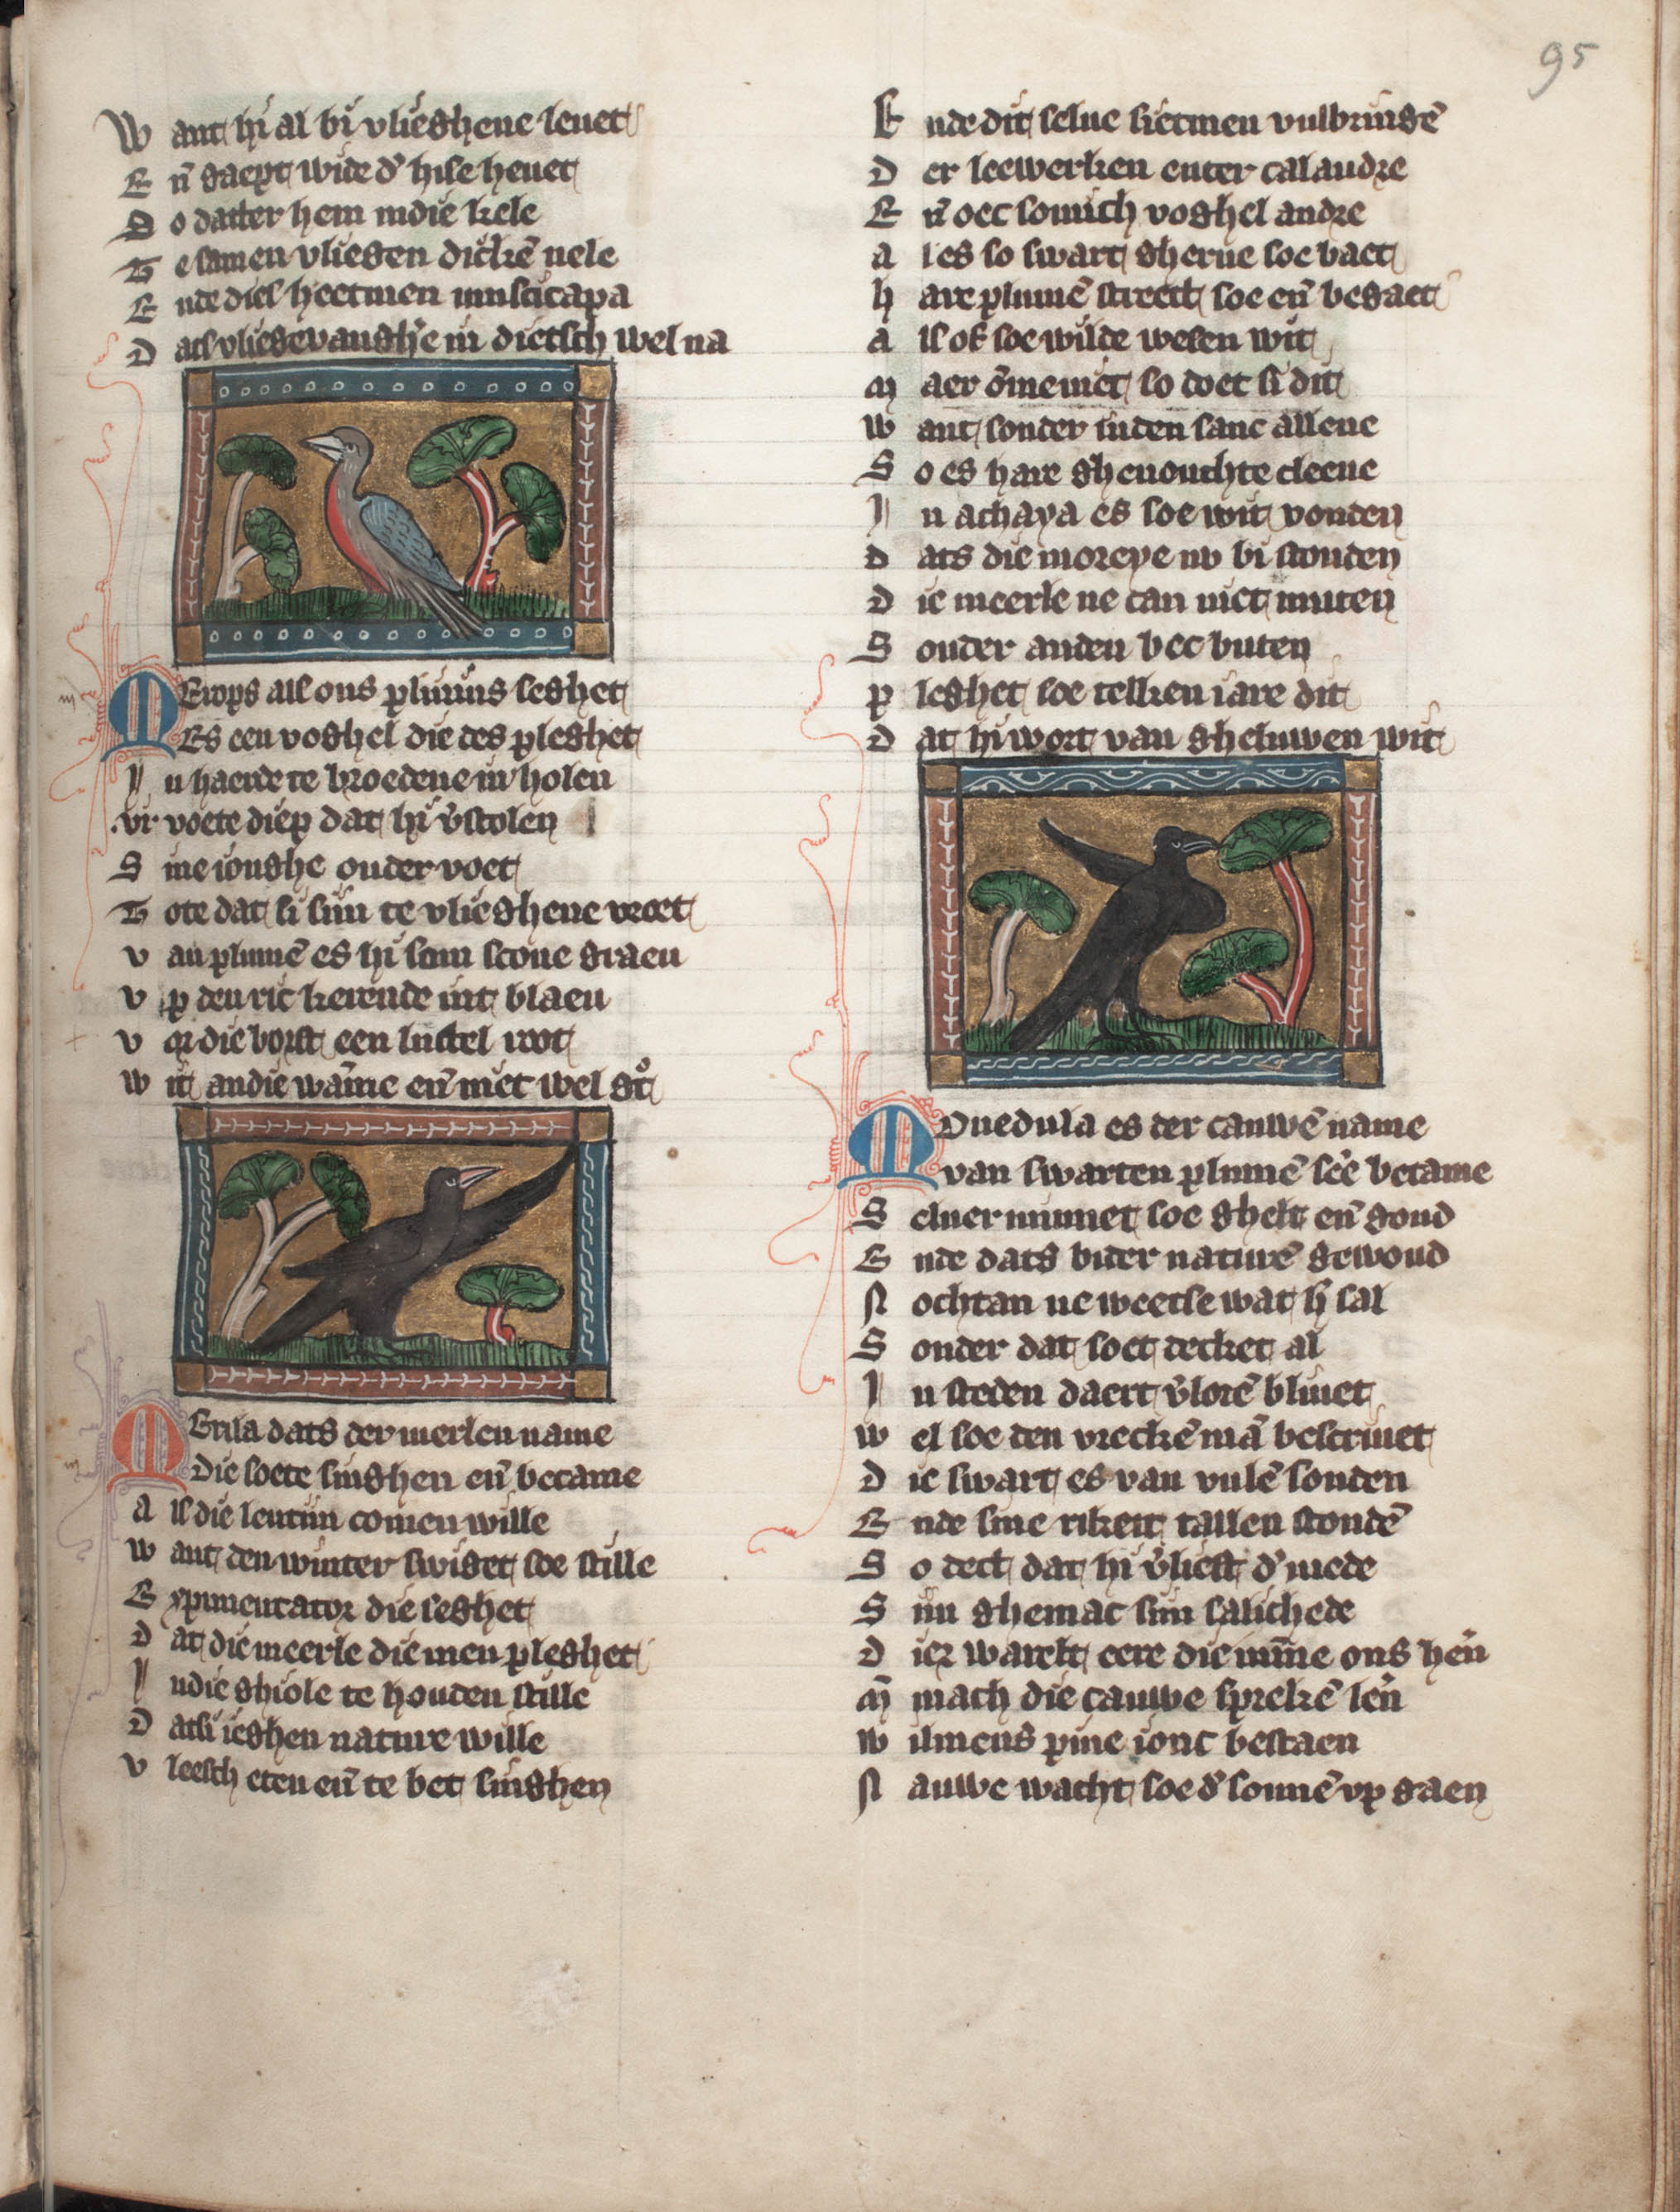 95
Want hi al bi vlieghene leuet
En̄ gaept wide d' hise heuet
So datter hem indie kele
Te samen vliegen dickē vele
Ende dies heetmen muscicapa
Dats vliegevanghe in dietsch wel na
Merops als ons plinius seghet
Es een voghel die des pleghet
In haerde te broedene in holen
.vi. voete diep dat hi v'stolen
Sine ionghe onder voet
Tote dat si siin te vlieghene vroet
Van plumē es hi som scone graeu
Vp den ric kerende int blaeu
Vor die borst een luttel root
Wit an die wāme en̄ niet wel gͦt
Merula dats der merlen name
Die soete singhen en̄ betame
Als die lentiin comen wille
Want den winter swiget soe stille
Experimentator die seghet
Dat die meerle die men pleghet
In die ghiole te houden stille
Dat si ieghen nature wille
Vleesch eten en̄ te bet singhen
Ende dit selue sietmen vulbringē
Der leewerken enter calandre
En̄ oec somich voghel andre
Al es so swart gherne soe baet
Hare plumē strect soe en̄ begaet
Als of soe wilde wesen wit
Maer ōme niet so doet si dit
Want sonder luden sanc allene
So es hare ghenouchte cleene
In achaya es soe wit vonden
Dats die moreye nv bi stonden
Die meerle ne can niet muten
Sonder anden bec buten
Pleghet soe telken iare dit
Dat hi wort van gheluwen wit
Monedula es der cauwē name
Van swarten plumē sē'e betame
Seluer minnet soe ghelt en̄ goud
Ende dats buter naturē gewoud
Nochtan ne weetse wat h' sal
Sonder dat soet decket al
In steden daert v'lorē bliuet
Wel soe den vreckē mā bescriuet
Die swart es van vulē sonden
Ende sine rikeit tallen stondē
So dect dat hi v'liest d' mede
Siin ghemac siin salichede
Dier warelt eere die min̄e ons hen̄
Mē mach die cauwe sprekē len̄
Wilmens pine ionc bestaen
Nauwe wacht soe d' sonnē vp gaen